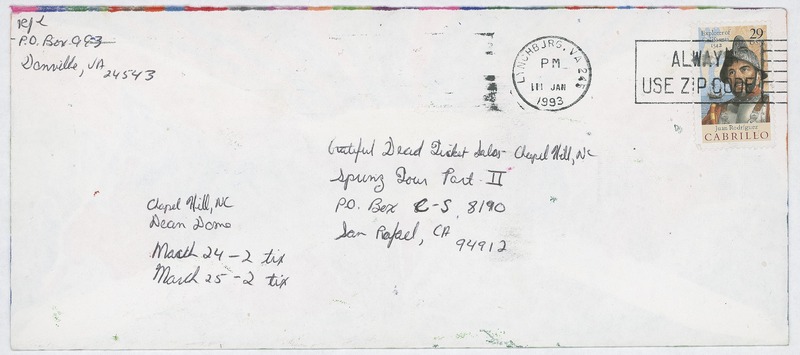 P.O. Box 993
Danville, VA
24543
LYNCHBURG, VA 245
PM
11 JAN
1993
ALWAYS
USE ZIP CODE
Explorer of
29
Juan Rodríguez
CABRILLO
Grateful Dead Ticket Sales - Chapel Hill, NC
Spring Tour Part II
P.O. Box C-S, 8190
San Rafael, CA
94912
Chapel Hill, NC
Dean Dome
March 24 - 2 tix
March 25 - 2 tix